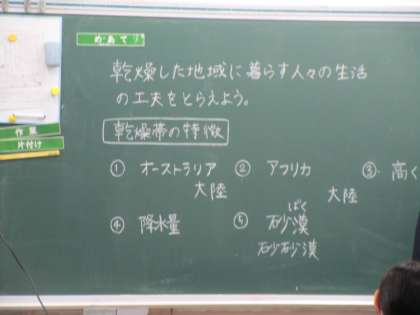 めあて
乾燥した地域に暮らす人々の生活
の工夫をとらえよう。
乾燥帯の特徴
① オーストラリア
大陸
② アフリカ
大陸
③ 高く
④ 降水量
⑤ 砂漠
ばく
砂砂漠
作業
片付け